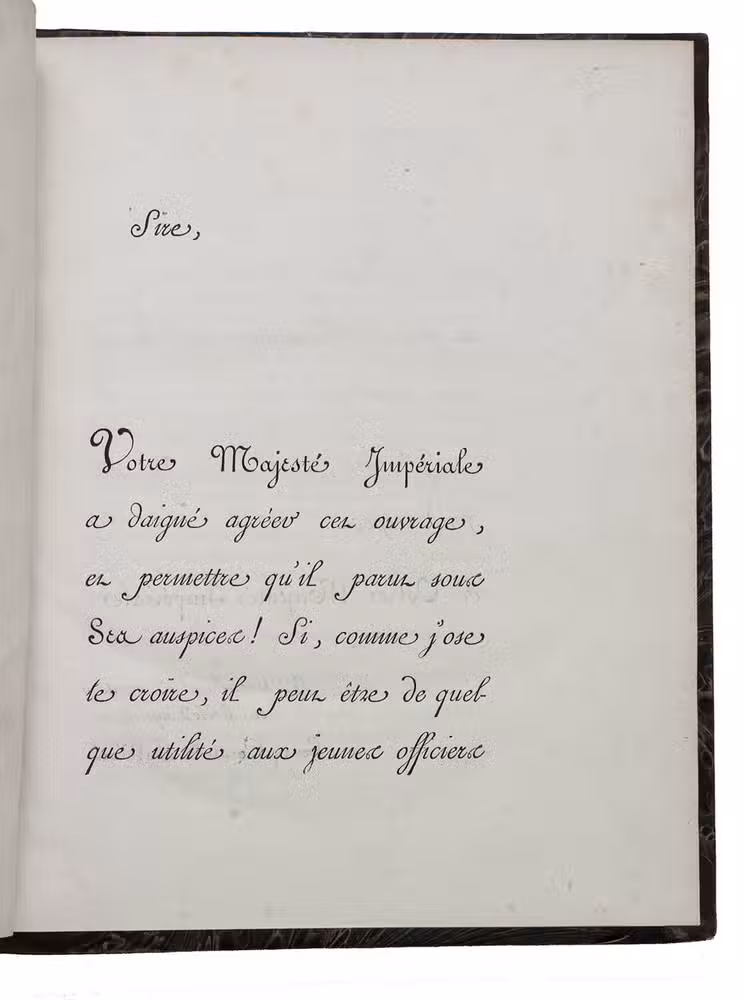 Sire,
Votre Majesté Impériale
a daigné agréer cet ouvrage,
et permettre qu'il parut sous
Ses auspices! Si, comme j'ose
le croire, il peut être de quel-
que utilité aux jeunes officiers